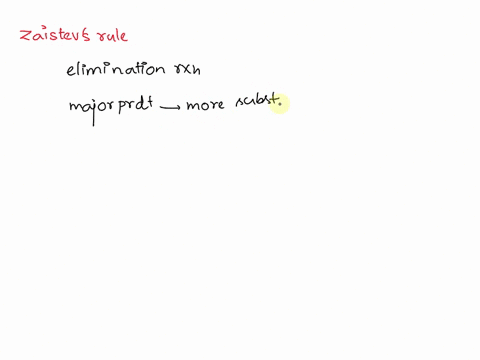 Zaistev's rule
elimination rxn
major prdt → more subst.